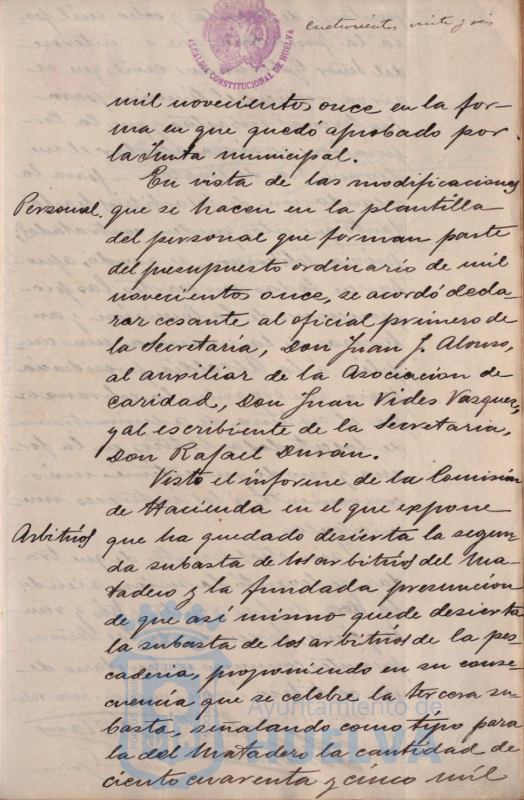 cuatrocientos veinte y seis
ALCALDIA CONSTITUCIONAL DE HUELVA
mil novecientos once en la for-
ma en que quedó aprobado por
la Junta municipal.
En vista de las modificaciones
Personal. que se hacen en la plantilla
del personal que forman parte
del presupuesto ordinario de mil
novecientos once, se acordó decla-
rar cesante al oficial primero de
la Secretaría, Don Juan J. Alonso,
al auxiliar de la Asociacion de
caridad, Don Juan Vides Vasquez,
y al escribiente de la Secretaria,
Don Rafael Durán.
Visto el informe de la Comisión
de Hacienda en el que expone
Arbitrios que ha quedado desierta la segun-
da subasta de los arbitrios del Ma-
tadero y la fundada presuncion
de que así mismo quede desierta
la subasta de los arbitrios de la pes-
cadería, proponiendo en su conse-
cuencia que se celebre la tercera su-
basta, señalando como tipo para
la del Matadero la cantidad de
ciento cuarenta y cinco mil
Ayuntamiento de
HUELVA